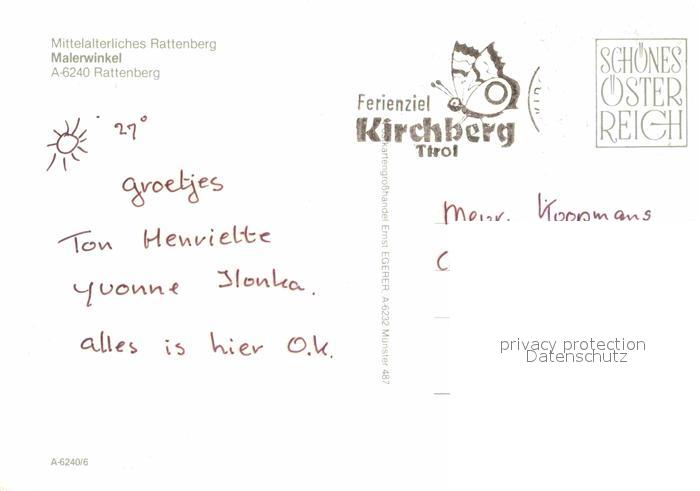 Mittelalterliches Rattenberg
Malerwinkel
A-6240 Rattenberg
27°
groetjes
Ton Henriette
Yvonne Ilonka.
alles is hier O.k.
A-6240/6
kartengroßhandel Ernst EGERER, A-6232 Münster 487
Ferienziel
Kirchberg
Tirol
SCHÖNES
ÖSTER
REICH
Mevr. Koopmans
privacy protection
Datenschutz